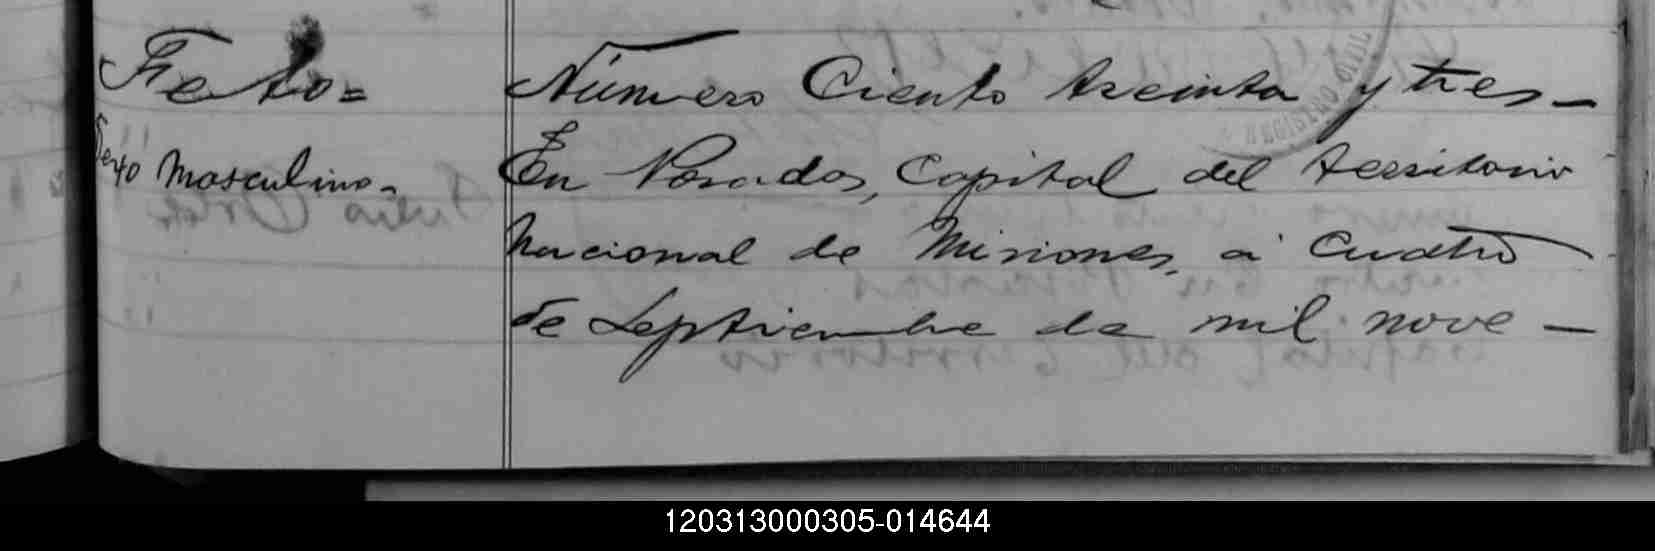 Feto=
Sexo Masculino-
Número Ciento treinta y tres-
En Posadas, Capital del territorio
Nacional de Misiones, á Cuatro
de Septiembre de mil nove-
REGISTRO CIVIL
120313000305-014644